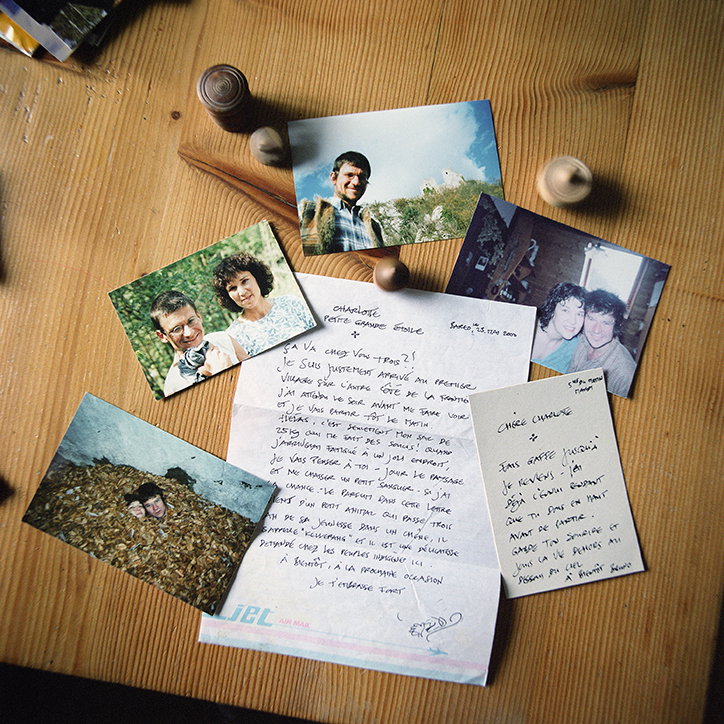 CHARLOTE
PETITE GRANDE ÉTOILE
SAREO, 23. MAI 2000
ÇA VA CHEZ VOUS TROIS?!
JE SUIS JUSTEMENT ARRIVÉ AU PREMIER
VILLAGE SUR L'AUTRE CÔTÉ DE LA FRONTIÈRE
J'AI ATTENDU LE SOIR AVANT ME FAIRE VOIR
ET JE VAIS PARTIR TÔT LE MATIN
HELAS, C'EST SEULEMENT MON SAC DE
25 KG QUI ME FAIT DES SOUCIS! QUAND
J'ARRIVERAI FATIGUÉ À UN JOLI ENDROIT,
JE VAIS PENSER À TOI - JOUIR LE PAYSAGE
ET ME CHASSER UN PETIT SANGLIER. SI J'AI
CHANCE. LE PARFUM DANS CETTE LETTRE
VIENT D'UN PETIT ANIMAL QUI PASSE TROIS
AN DE SA JEUNESSE DANS UN CHÊNE, IL
S'APPELLE "KELLERANG" ET IL EST UNE DÉLICATESSE
DEMANDÉ CHEZ LES PEUPLES INDIGÈNE ICI.
À BIENTÔT, À LA PROCHAINE OCCASION
JE T'EMBRASSE FORT
JET AIR MAIL
CHÈRE CHARLOTE
FAIS GAFFE JUSQU'À
JE REVIENS! J'AI
DÉJÀ L'ENNUI PENDANT
QUE TU DORS EN HAUT
AVANT DE PARTIR.
GARDE TON SOURIRE ET
JOUIS LA VIE DEHORS AU
DESSOUS DU CIEL
À BIENTÔT BRUNO